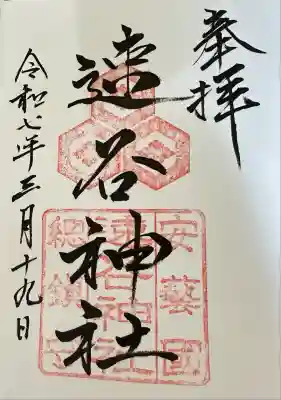 奉拝
速谷神社
令和七年三月十九日
安藝國
速谷神社
總鎮守